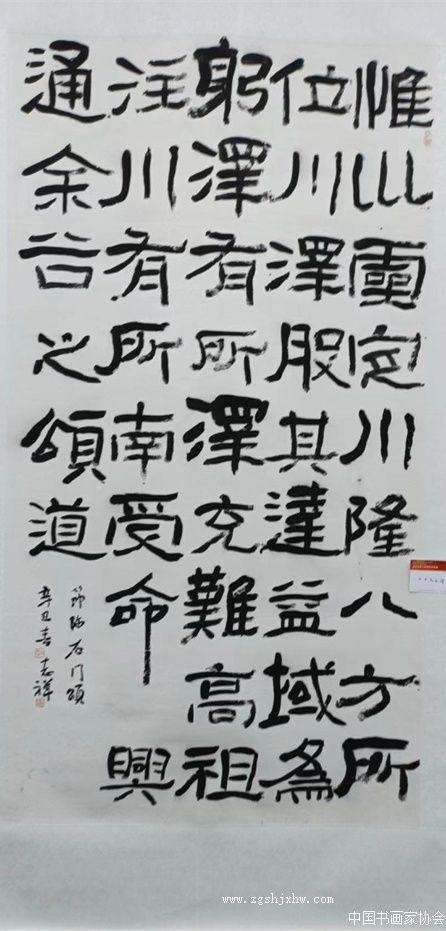 惟巛靈定川隆八方所
位川澤股其達益域為
躬澤有所澤充難高祖
注川有所南受命興
通余谷之頌道
節臨石門頌
辛丑春志祥
www.zgshjxhw.com
中国书画家协会